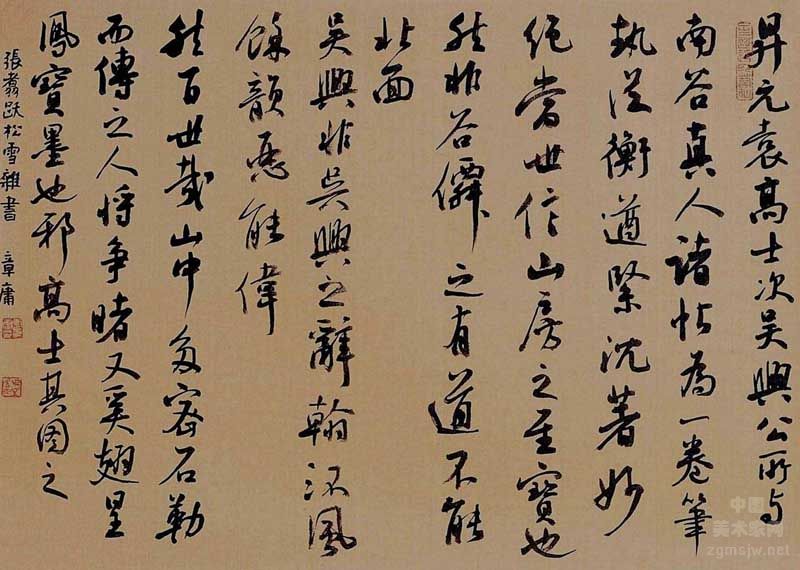 昇元袁高士次吴興公所与
南谷真人諸帖為一卷筆
執從衡遒緊沈著妙
絕當世信山房之至寶也
然非谷僊之有道不能
北面
吴興非吴興之辭翰流風
餘韻惡能偉
然百世哉山中多密石勒
而傳之人將争睹又奚翅星
鳳寶墨也邪高士其图之
張翥跋松雪雜書 章庸
中国
美术家网
zgmsjw.net